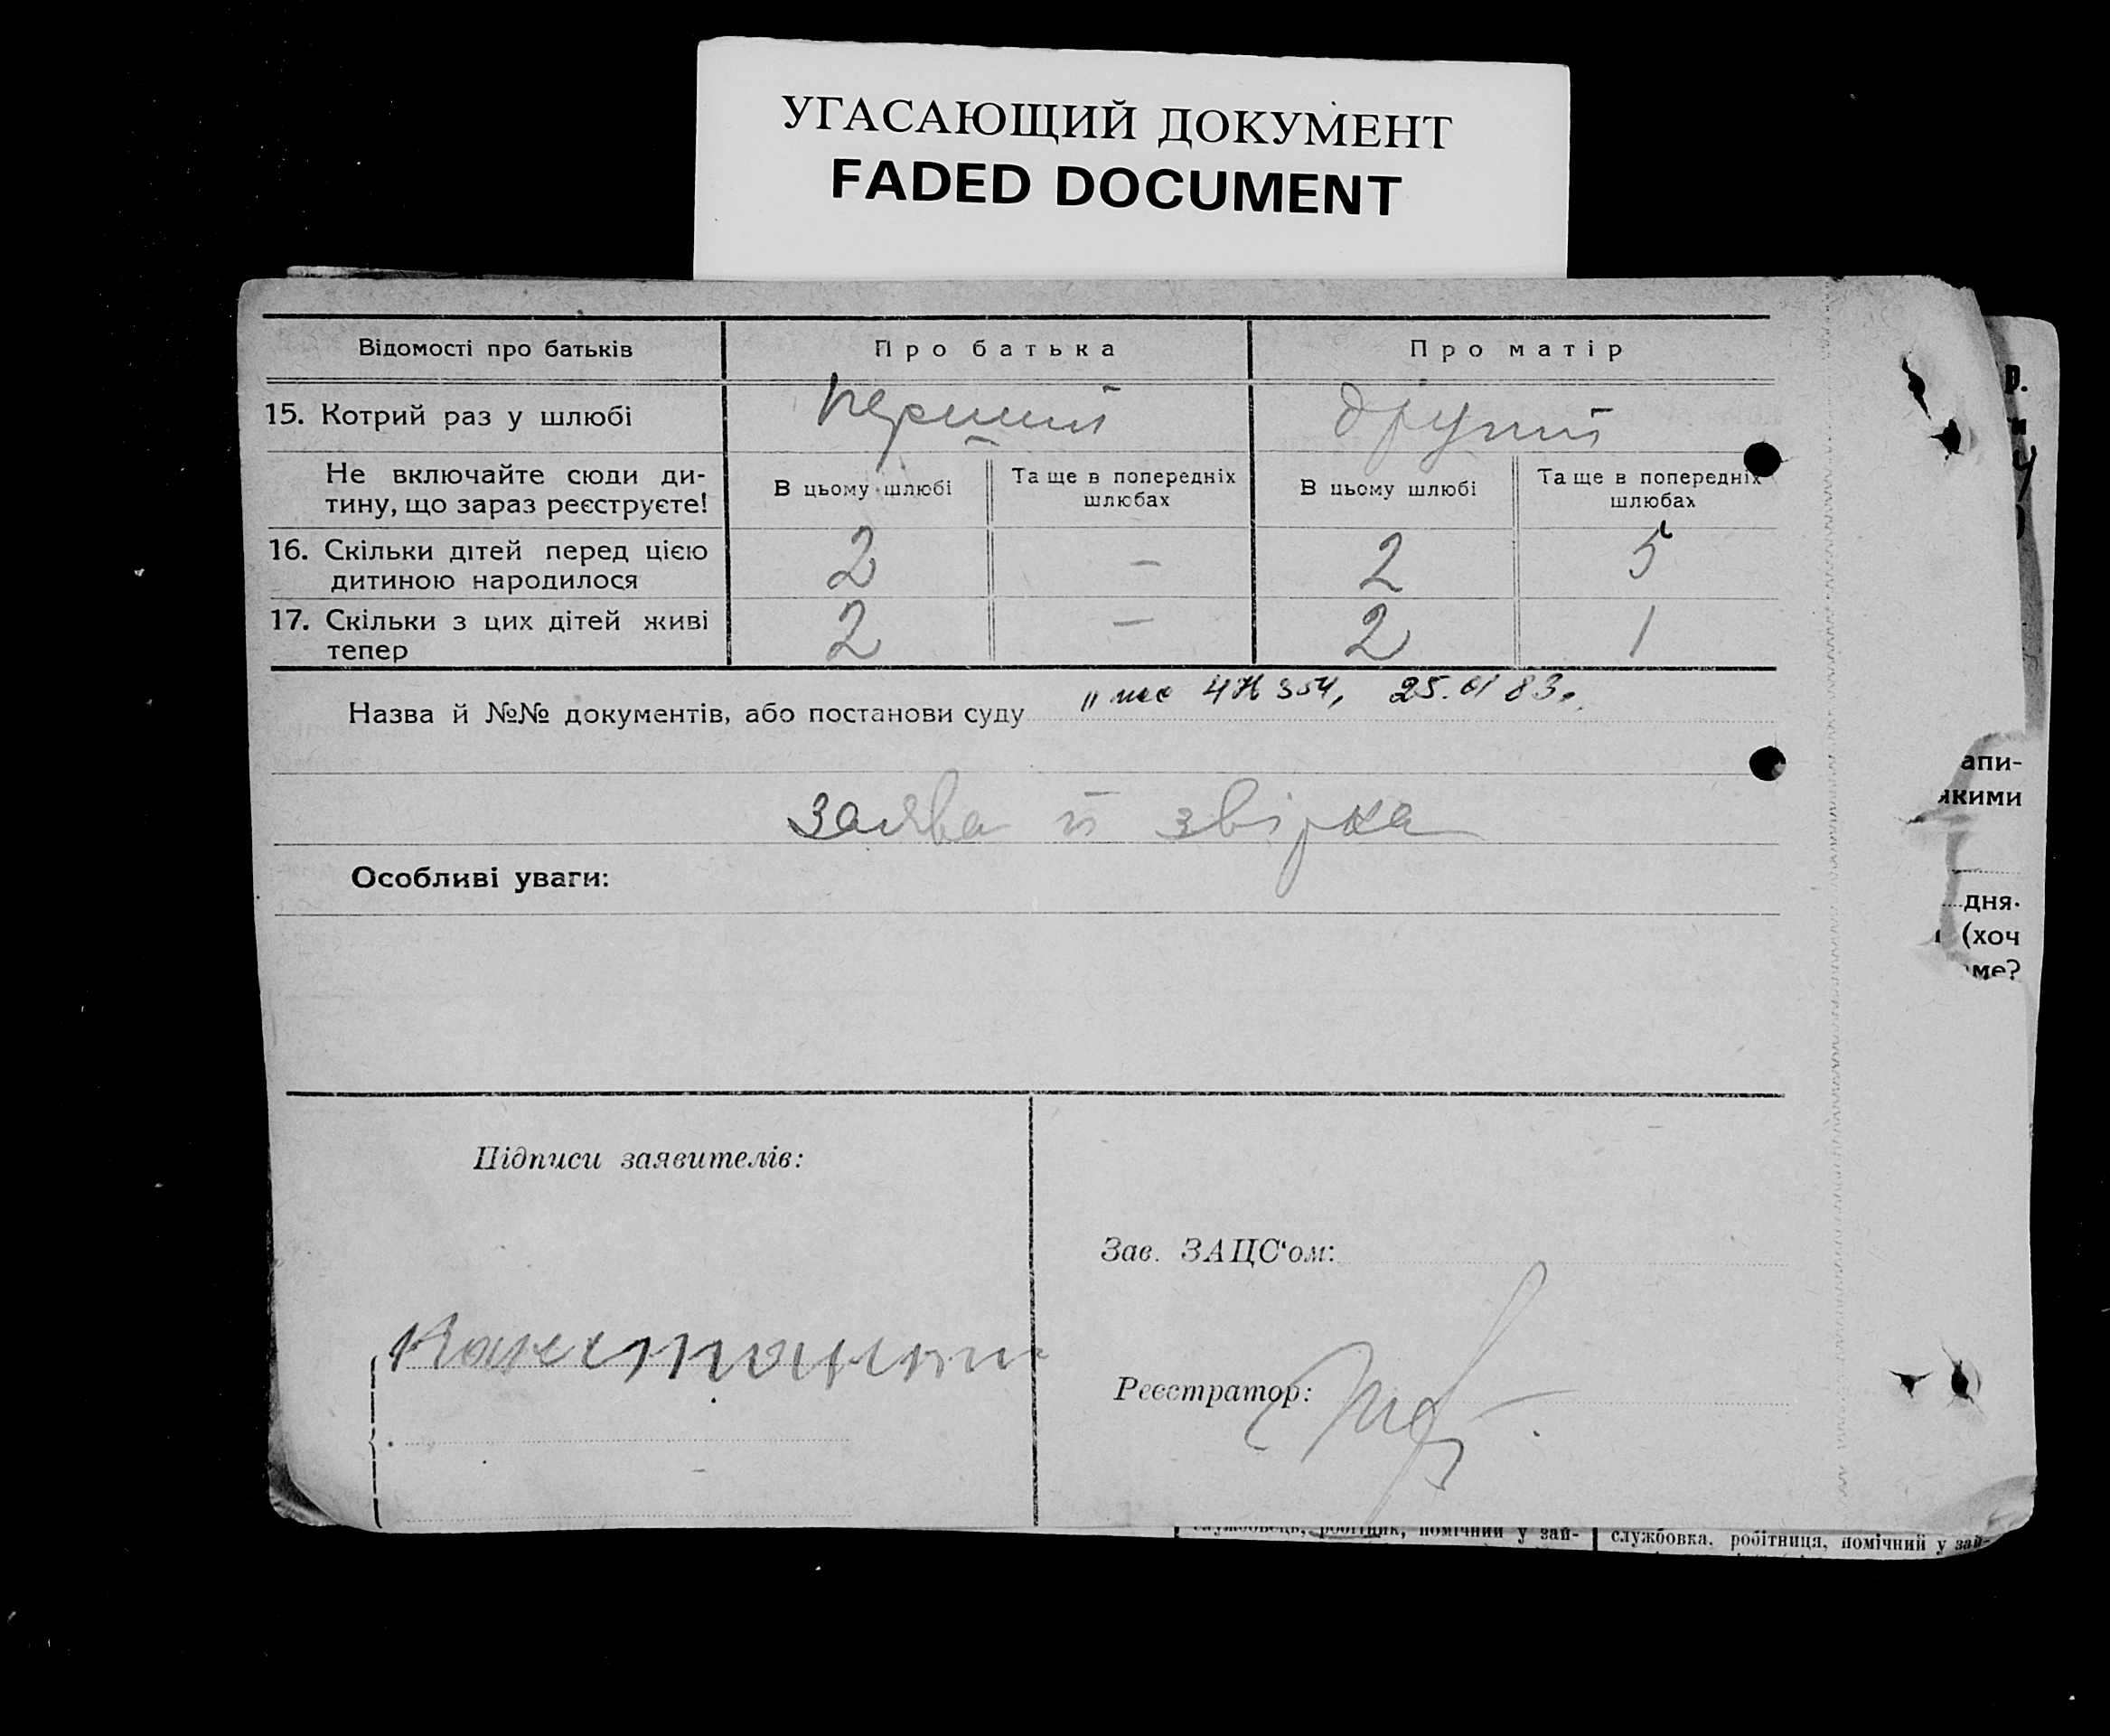 УГАСАЮЩИЙ ДОКУМЕНТ
FADED DOCUMENT
Відомості про батьків Про батька Про матір
15. Котрий раз у шлюбі перший другий
Не включайте сюди ди-
тину, що зараз реєструєте!
В цьому шлюбі Та ще в попередніх шлюбах В цьому шлюбі Та ще в попередніх шлюбах
16. Скільки дітей перед цією
дитиною народилося 2 – 2 5
17. Скільки з цих дітей живі
тепер 2 – 2 1
Назва й №№ документів, або постанови суду 354, 25.01 83
заява й звірка
Особливі уваги:
Підписи заявителів:
Зав. ЗАЦС'ом:
Реєстратор:
р.
апи-
якими
дня.
(хоч
ме?
службовець, робітник, помічний у зай-
службовка, робітниця, помічний у зай-